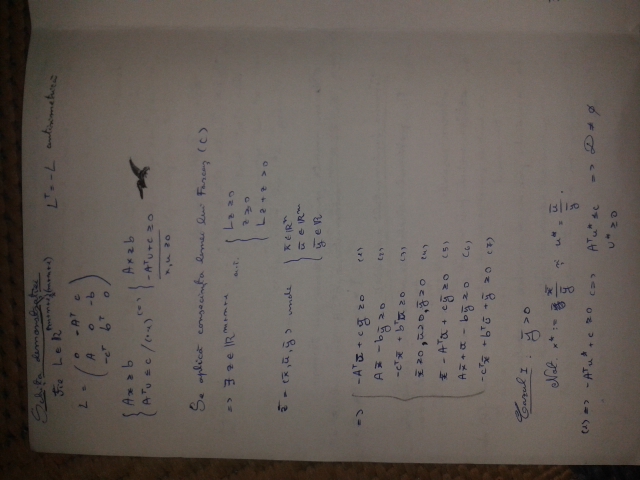 Schița demonstrației
Fie L ∈ ℝ^(m+n+1)×(m+n+1) L^T = -L antisimetrică
L = ( 0 -A^T c
A 0 -b
-c^T b^T 0 )
{ Ax ≥ b
A^T u ≤ c /(-1) (=) { Ax ≥ b
-A^T u + c ≥ 0
x, u ≥ 0
Se aplică consecința lemei lui Farcaș (C)
=> ∃ z ∈ ℝ^m+n+1 a.î. { Lz ≥ 0
z ≥ 0
Lz + z > 0
z̄ = (x̄, ū, ȳ) unde { x̄ ∈ ℝ^n
ū ∈ ℝ^m
ȳ ∈ ℝ
=> { -A^T ū + cȳ ≥ 0 (1)
Ax̄ - bȳ ≥ 0 (2)
-c^T x̄ + b^T ū ≥ 0 (3)
x̄ ≥ 0, ū ≥ 0, ȳ ≥ 0 (4)
x̄ - A^T ū + cȳ > 0 (5)
Ax̄ + ū - bȳ > 0 (6)
-c^T x̄ + b^T ū + ȳ > 0 (7)
Cazul I: ȳ > 0
Not. x* := x̄/ȳ ; u* = ū/ȳ.
(1) => -A^T u* + c ≥ 0 (=) A^T u* ≤ c => D ≠ ∅
u* ≥ 0